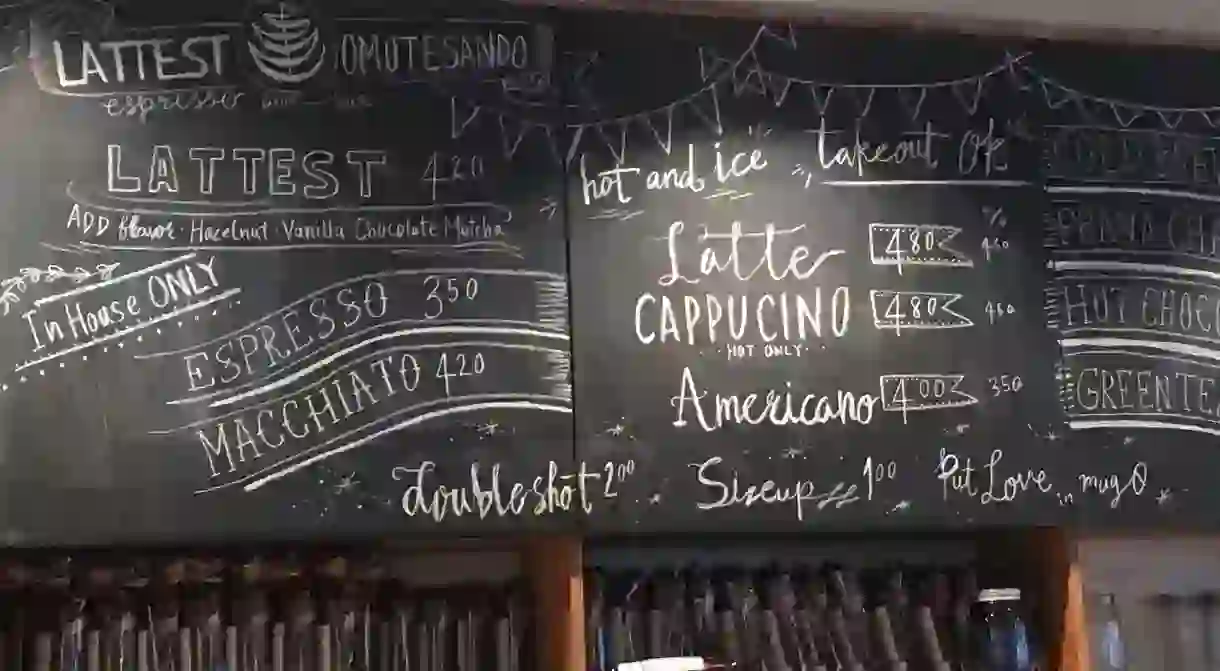 LATTEST OMOTESANDO
espresso
LATTEST 420
ADD flavor · Hazelnut · Vanilla Chocolate Matcha
In House ONLY
ESPRESSO 350
MACCHIATO 420
hot and ice takeout OK
Latte 480
CAPPUCINO 480
HOT ONLY
Americano 400 350
GREEN TEA
doubleshot 200 Sizeup 100 Put Love in mug 0